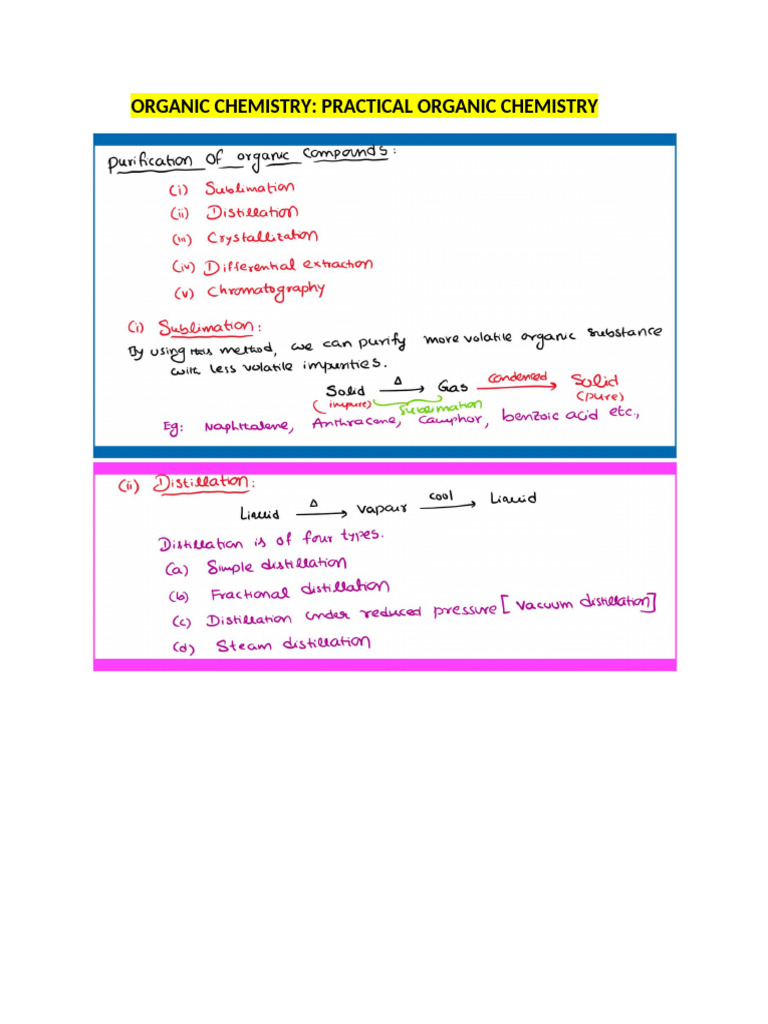 ORGANIC CHEMISTRY: PRACTICAL ORGANIC CHEMISTRY
Purification of organic compounds:
(i) Sublimation
(ii) Distillation
(iii) Crystallization
(iv) Differential extraction
(v) Chromatography
(i) Sublimation:
By using this method, we can purify more volatile organic substance
with less volatile impurities.
Solid Δ → Gas condensed → Solid
(impure) sublimation (pure)
Eg: Naphthalene, Anthracene, Camphor, benzoic acid etc.,
(ii) Distillation:
Liquid Δ → Vapour cool → Liquid
Distillation is of four types.
(a) Simple distillation
(b) Fractional distillation
(c) Distillation under reduced pressure [Vacuum distillation]
(d) Steam distillation